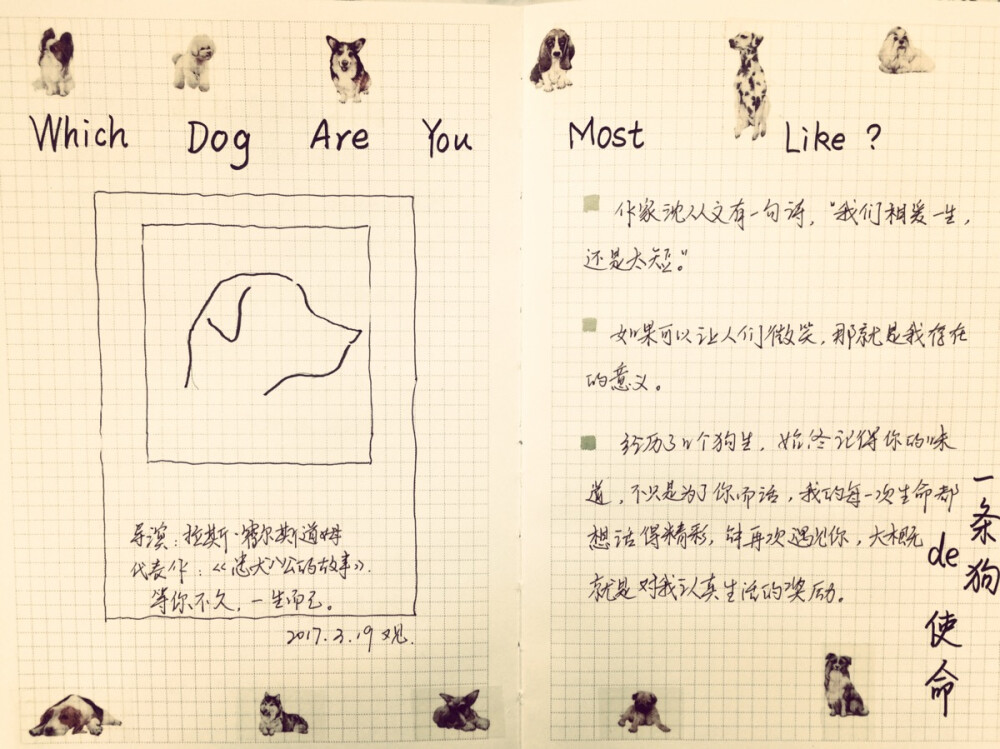 Which Dog Are You Most Like ?
导演：拉斯·霍尔斯道姆
代表作：《忠犬八公的故事》.
等你不久，一生而已。
2017.3.19 观.
作家沈从文有一句诗，“我们相爱一生，
还是太短。”
如果可以让人们微笑，那就是我存在
的意义。
经历了4个狗生，始终记得你的味
道，不只是为了你而活，我的每一次生命都
想活得精彩，能再次遇见你，大概
就是对我认真生活的奖励。
一条狗
de
使命